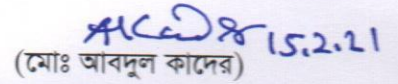 15.2.21
(মোঃ আবদুল কাদের)